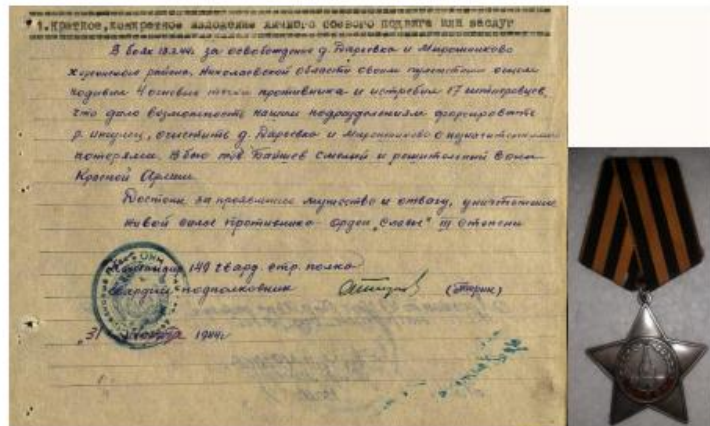 1. Краткое, конкретное изложение личного боевого подвига или заслуг
В боях 13.3.44г. за освобождение д. Дарьевка и Мирошниково
херсонского района, Николаевской области своим пулеметным огнем
подавил 4 огневые точки противника и истребил 17 гитлеровцев,
что дало возможность нашим подразделениям форсировать
р. ингулец, очистить д. Дарьевка и Мирошниково с незначительными
потерями. В бою тов. Байшев смелый и решительный воин
Красной Армии.
Достоин за проявленное мужество и отвагу, уничтожение
живой силы противника - орден „Славы" III степени
Командир 149 гвард. стр. полка
гвардии подполковник
"31" 1944г